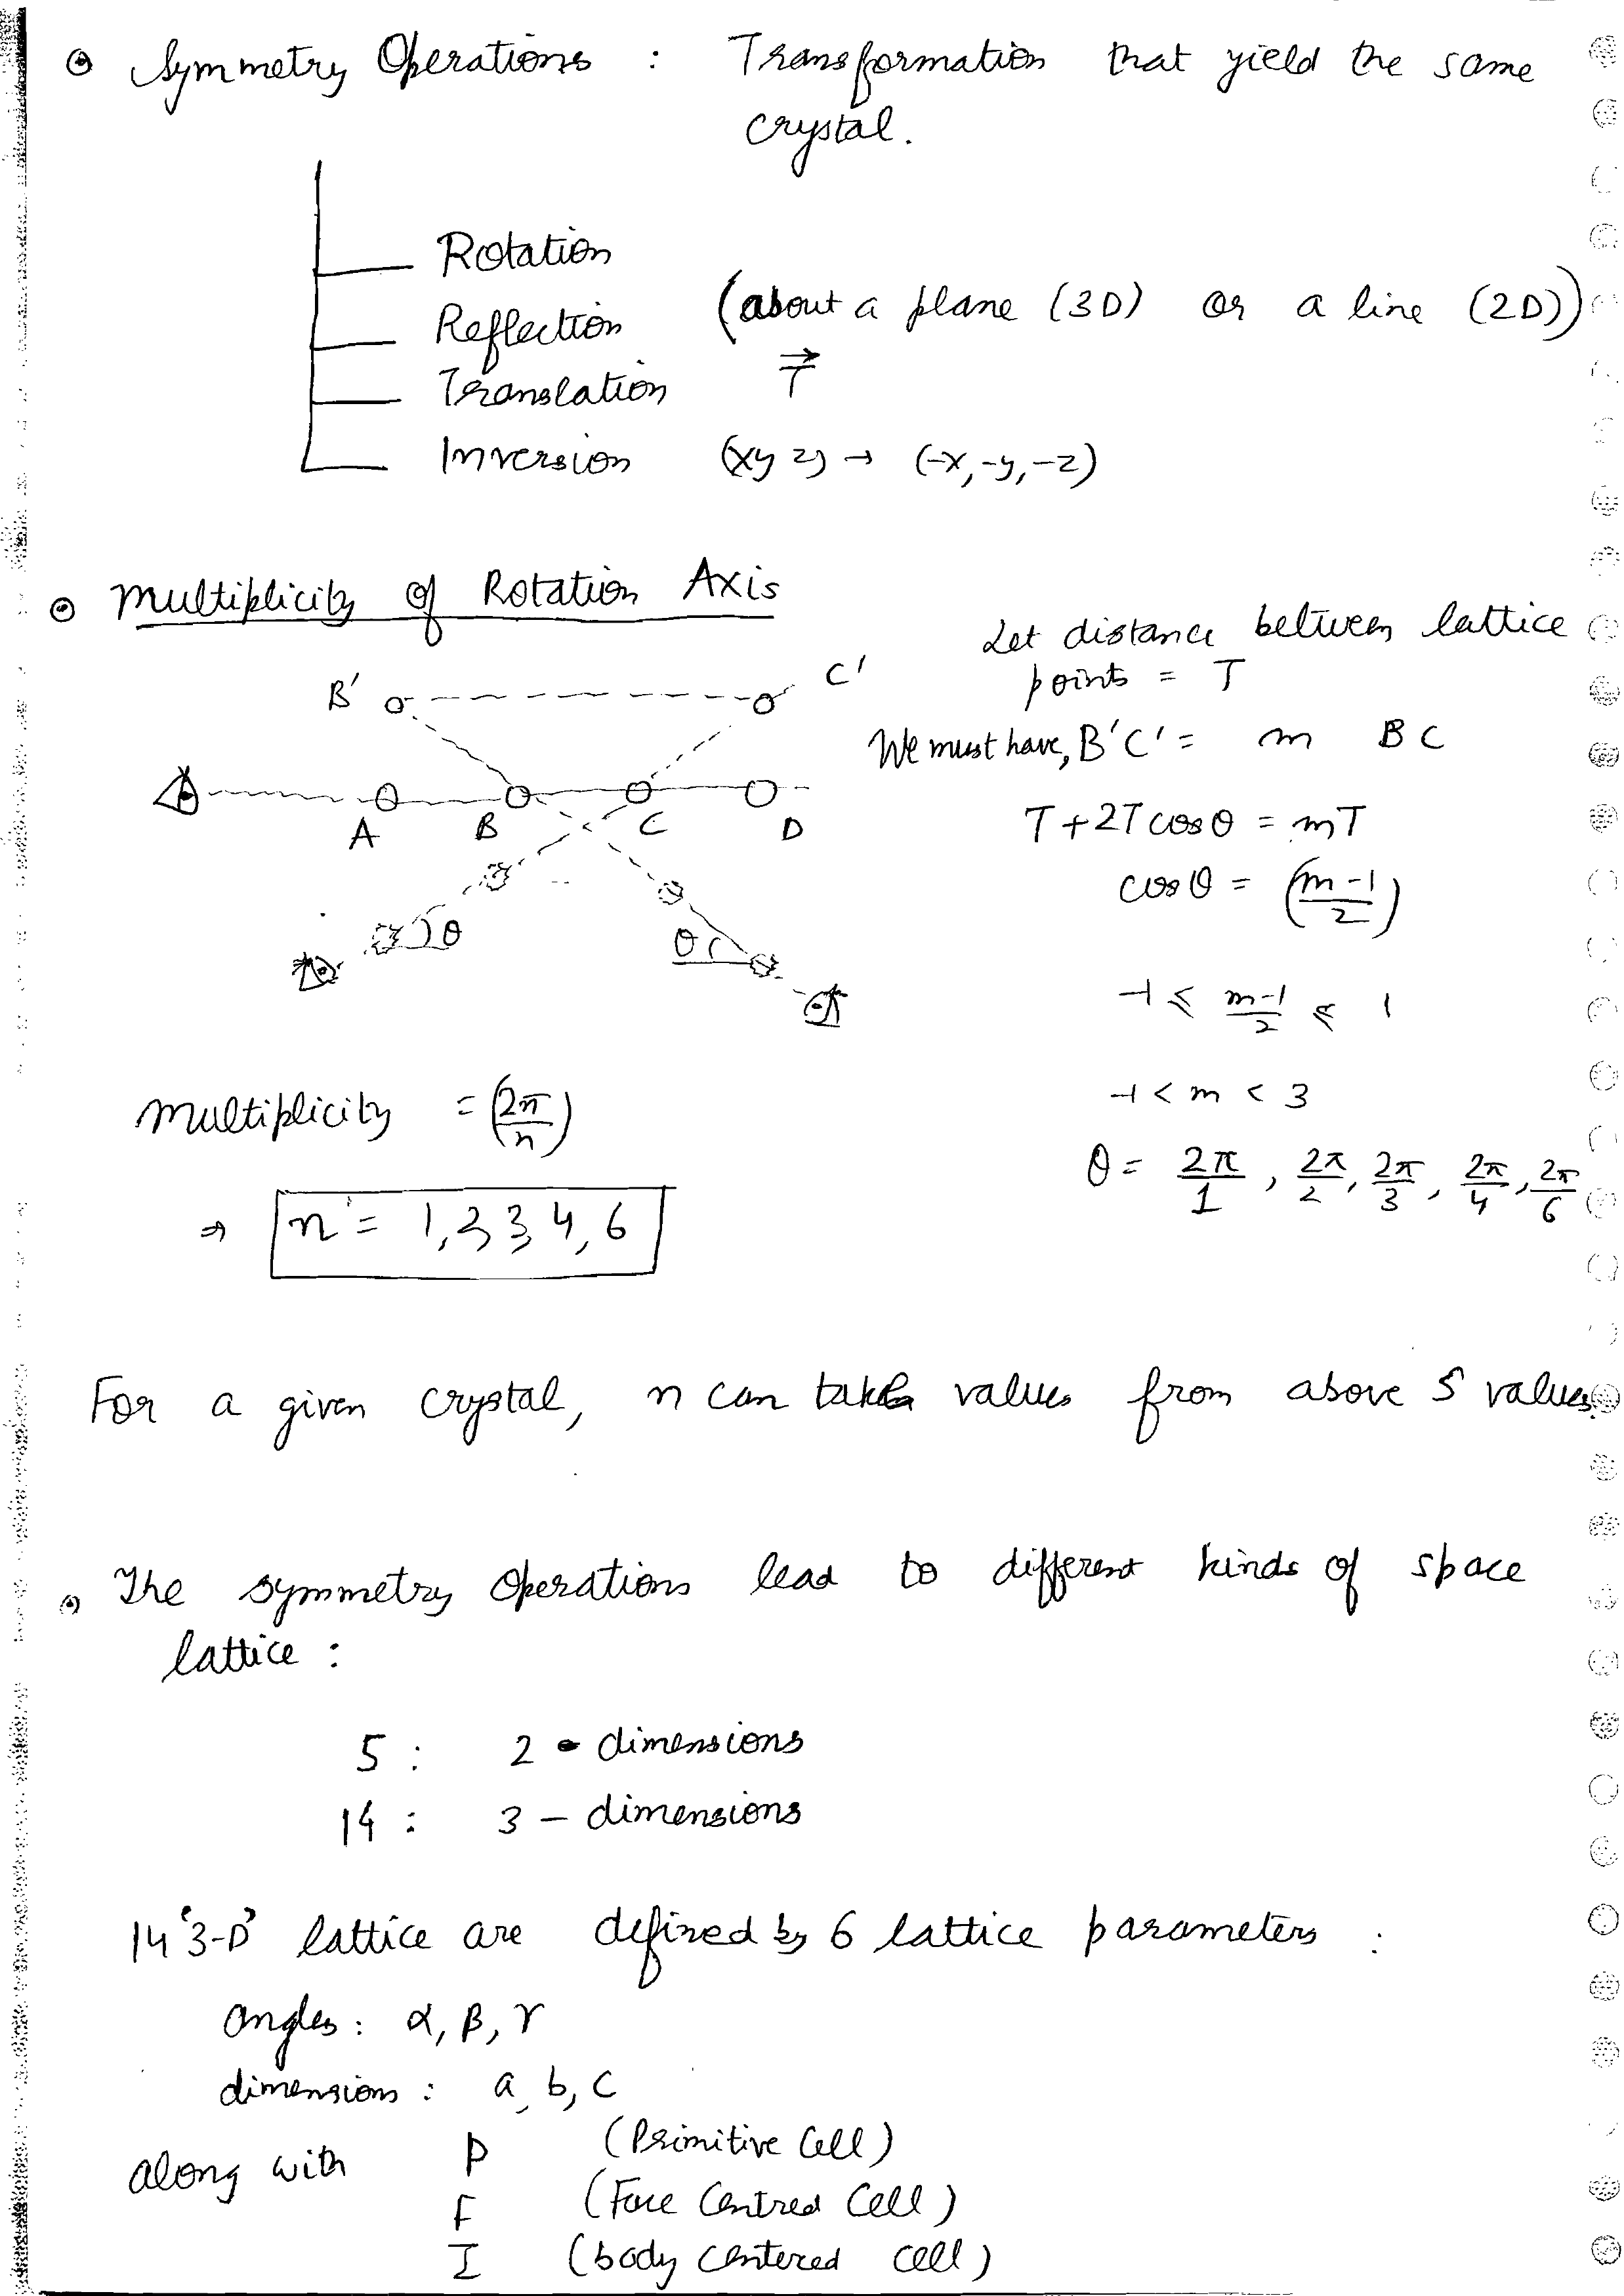 Symmetry Operations : Transformation that yield the same
crystal.
Rotation
Reflection (about a plane (3D) or a line (2D))
Translation T⃗
Inversion (xy z) → (-x, -y, -z)
Multiplicity of Rotation Axis
Let distance between lattice
points = T
B' C'
We must have, B'C' = m BC
A B C D
T + 2T cosθ = mT
cosθ = (m-1/2)
θ θ
-1 ≤ m-1/2 ≤ 1
-1 < m < 3
multiplicity = (2π/n)
θ = 2π/1, 2π/2, 2π/3, 2π/4, 2π/6
⇒ n = 1,2,3,4,6
For a given crystal, n can take values from above 5 values.
The symmetry operations lead to different kinds of space
lattice :
5 : 2 - dimensions
14 : 3 - dimensions
14 '3-D' lattice are defined by 6 lattice parameters :
angles : α, β, γ
dimensions : a, b, c
along with P (Primitive Cell)
F (Face Centred Cell)
I (body centered cell)